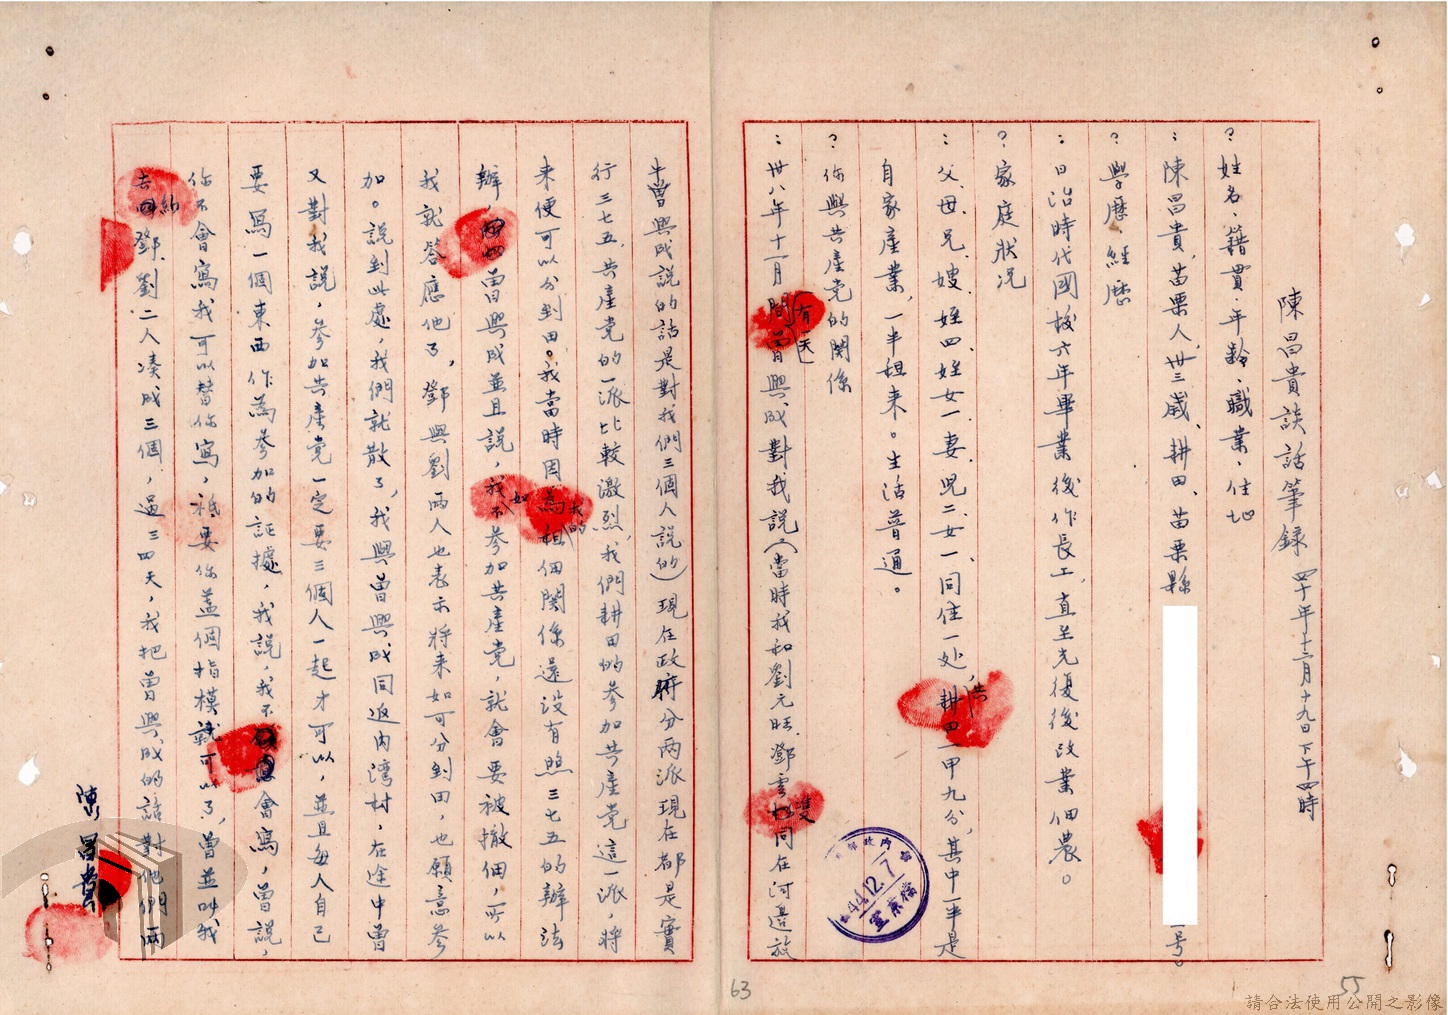 陳昌貴談話筆錄 四十年十二月十九日下午四時
？姓名、籍貫、年齡、職業、住址
：陳昌貴，苗栗人，卅三歲、耕田、苗栗縣 一号。
？學歷、經歷
：日治時代國校六年畢業後作長工，直至光復後改業佃農。
？家庭狀況
：父、母、兄、嫂、姪四姪女一、妻、兒二、女一、同住一処，耕田一甲九分，其中一半是
自家產業，一半租來。生活普通。
？你與共產党的関係
：卅八年十一月間（有一天）曾興成對我說（當時我和劉元旺、鄧雲雙同在河邊放
牛曾興成說的話是對我們三個人說的）現在政府分兩派現在都是實
行三七五，共產党的一派比較激烈，我們耕田的参加共產党這一派，將
來便可以分到田。我當時因為我的租佃関係還没有照三七五的辦法
辦，曾興成並且說，如不参加共產党，就會要被撤佃，所以
我就答應他了，鄧與劉兩人也表示將來如可分到田，也願意参
加。說到此處，我們就散了，我與曾興成同返內湾村，在途中曾
又對我說，参加共產党一定要三個人一起才可以，並且每人自己
要寫一個東西作為参加的証據，我說，我不會寫，曾說，
你不會寫我可以替你寫，祗要你蓋個指模就可以了，曾並叫我
去約鄧、劉二人凑成三個，過三四天，我把曾興成的話對他們兩
陳昌貴
內政部
44.12.7
檔案室
63
55
請合法使用公開之影像